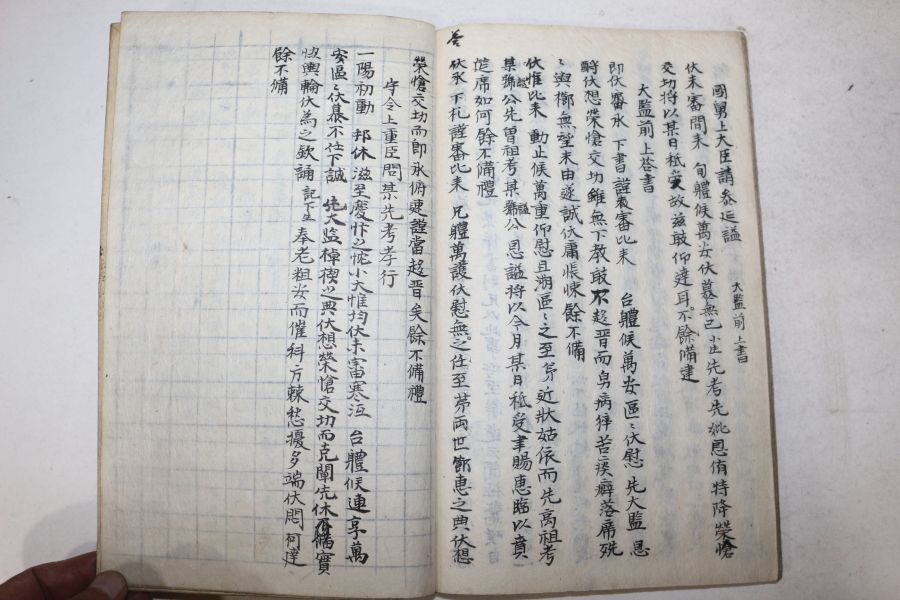 國舅上大臣請參延諡 大監前 上書
伏未審間來 旬體候萬安伏慕無已小生先考先妣恩侑特降 榮愴
交切將以某日祗受 故玆敢仰達耳 餘備達
大監前 上答書
卽伏審承 下書謹審比來 台體候萬安區〻伏慰 先大監 恩
爵伏想榮愴交切 雖無下教敢不趨晉而身病猝苦 癖落席
〻與擲無望末由遂誠伏庸悵悚餘不備
伏惟比來 動止候萬重仰慰且溯區〻之至弟近狀姑依而先高祖考
某號公先曾祖考某號諡公 恩諡將以今月某日祗受聿賜惠臨以賁
筵席如何餘不備禮
答
伏承下札謹審比來 兄體萬護伏慰無之任至弟兩世節惠之典伏想
榮愴交切而卽承俯速謹當趨晉矣餘不備禮
守令上重臣問某先考孝行
一陽初動 邦休滋至慶忭之忱小大惟均伏未審寒冱 台體候連享萬
安區〻伏慕不任下誠 先大監棹楔之典伏想榮愴交切而克闡先休 實
輿輪伏為之欽誦 記下生 奉老粗安而催科方棘愁擾多端伏悶何達
餘不備